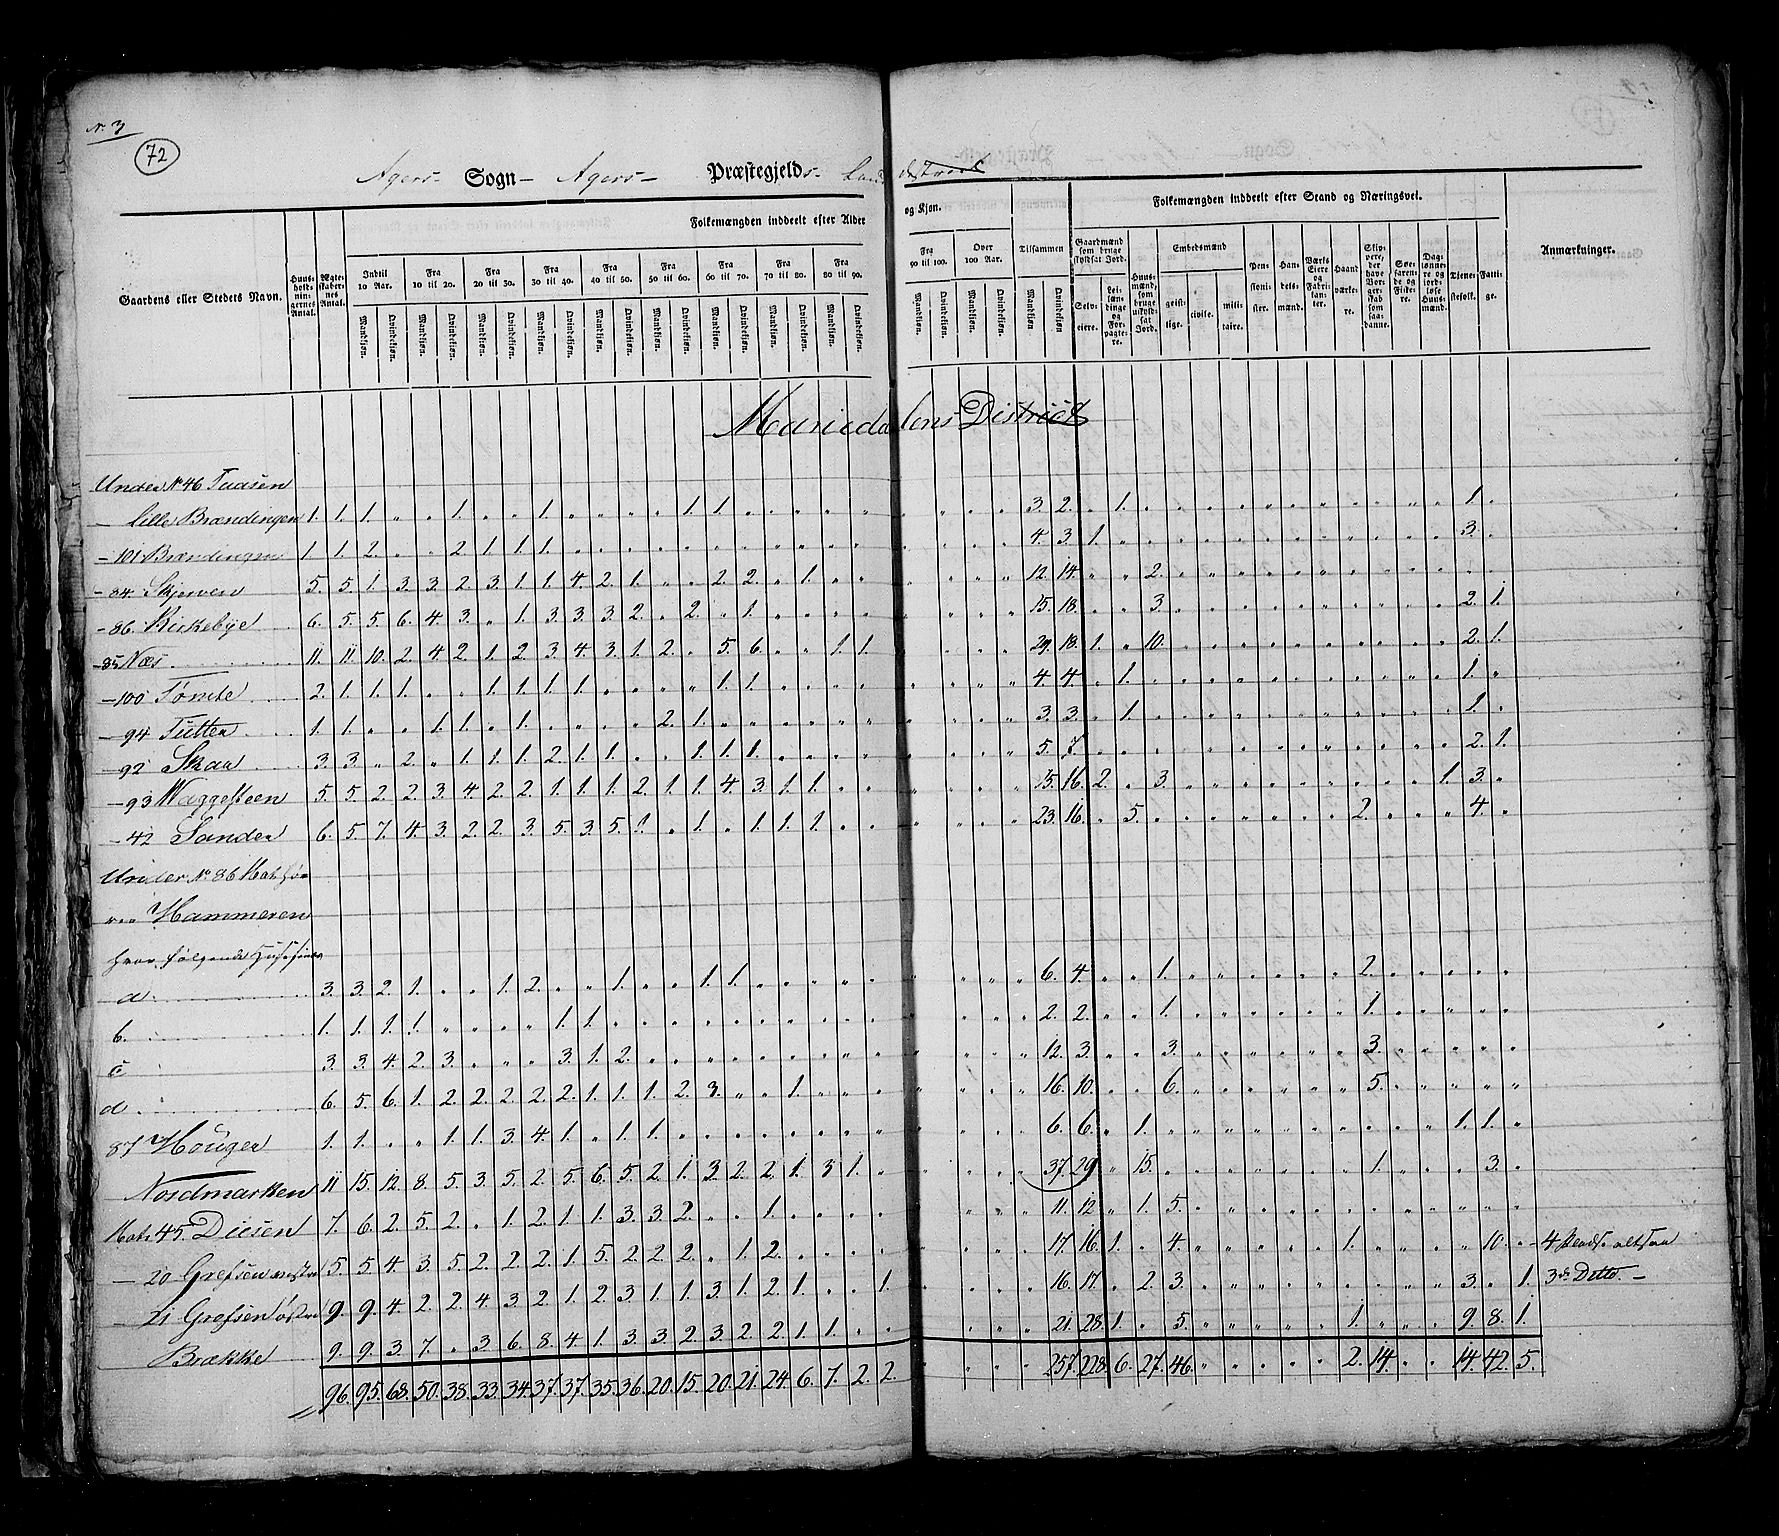 N. 3
72
Agers Sogn – Agers – Præstegjelds Land district
Folkemængden inddeelt efter Alder og Kjøn.
Folkemængden inddeelt efter Stand og Næringsvei.
Gaardens eller Stedets Navn.
Huusholdningernes Antal.
Ægteskabernes Antal.
Indtil 10 Aar.
Fra 10 til 20.
Fra 20 til 30.
Fra 30 til 40.
Fra 40 til 50.
Fra 50 til 60.
Fra 60 til 70.
Fra 70 til 80.
Fra 80 til 90.
Fra 90 til 100.
Over 100 Aar.
Tilsammen
Mandkjøn. Qvindekjøn.
Gaardmænd som bruge skyldsat Jord.
Selveiere.
Leilændinge og Forpagtere.
Huusmænd, som bruge uskyldsat Jord.
Embedsmænd
geistlige.
civile.
militaire.
Pensionister.
Handelsmænd.
Værks Eiere og Fabrikanter.
Haandværkere.
Skippere, der have Borgerskab som saadanne.
Søefarende og Fiskere.
Daglønnere og jordløse Huusmænd.
Tjenestefolk.
Fattige.
Anmærkninger.
Mariedalens District
Under No 46 Taasen
– lille Brændingen 1. 1. 1. „ „ 1. „ „ 1. „ „ „ „ 1. 1. „ „ „ „ „ „ „ „ „ 3. 2. „ 1. „ „ „ „ „ „ „ „ „ „ „ 1. „
– 101 Brændingen 1. 1. 2. „ „ 2. 1. 1. 1. „ „ „ „ „ „ „ „ „ „ „ „ „ „ „ 4. 3. 1. „ „ „ „ „ „ „ „ „ „ „ „ 3. „
– 84 Skjerven 5. 5. 1. 3. 3. 2. 3. 1. 1. 4. 2. 1. „ „ 2. 2. „ 1. „ „ „ „ „ „ 12. 14. „ „ 2. „ „ „ „ „ „ „ „ „ „ „ „
– 86 Kirkebye 6. 5. 5. 6. 4. 3. „ 1. 3. 3. 3. 2. „ 2. „ 1. „ „ „ „ „ „ „ „ 15. 18. „ „ 3. „ „ „ „ „ „ „ „ „ „ 2. 1.
– 85 Næs 11. 11. 10. 2. 4. 2. 1. 2. 3. 4. 3. 1. 2. „ 5. 6. „ „ 1. 1. „ „ „ „ 29. 18. 1. „ 10. „ „ „ „ „ „ „ „ „ „ 2. 1.
– 100 Tømte 2. 1. 1. 1. „ „ 1. 1. 1. 1. „ „ „ „ 1. 1. „ „ „ „ „ „ „ „ 4. 4. „ 1. „ „ „ „ „ „ „ „ „ „ „ 1. „
– 94 Turter 1. 1. „ „ 1. 1. „ 1. „ „ „ „ 2. 1. „ „ „ „ „ „ „ „ „ „ 3. 3. „ 1. „ „ „ „ „ „ „ „ „ „ „ 1. „
– 92 Skar 3. 3. „ 2. „ 1. 1. 1. 2. 1. 1. „ „ 1. 1. 1. „ „ „ „ „ „ „ „ 5. 7. „ „ „ „ „ „ „ „ „ „ „ „ „ 2. 1.
– 93 Waggesteen 5. 5. 2. 2. 3. 4. 2. 2. 1. 1. 1. 2. 1. 1. 4. 3. 1. 1. „ „ „ „ „ „ 15. 16. 2. „ 3. „ „ „ „ „ „ „ „ „ 1. 3. „
– 42 Sander 6. 5. 7. 4. 3. 2. 2. 3. 5. 3. 5. 1. „ 1. „ 1. 1. 1. „ „ „ „ „ „ 23. 16. „ 5. „ „ „ „ „ „ „ 2. „ „ „ 4. „
Under No 86 Hammeren
hvor følgende
a 3. 3. 2. 1. „ „ 1. 2. „ „ 1. „ „ 1. 1. „ „ „ „ „ „ „ „ 6. 4. „ „ 1. „ „ „ „ „ „ 2. „ „ „ „ „
b. 1. 1. 1. 1. „ „ „ „ 1. 1. „ „ „ „ „ „ „ „ „ „ „ „ „ 2. 2. „ „ 1. „ „ „ „ „ „ 1. „ „ „ „ „
c 3. 3. 4. 2. 3. „ „ „ 3. 1. 2. „ „ „ „ „ „ „ „ „ „ „ „ 12. 3. „ „ 3. „ „ „ „ „ „ 3. „ „ „ „ „
d 6. 5. 6. 1. 2. 2. 2. 2. 2. 1. 1. 1. 2. 3. „ „ 1. „ „ „ „ „ „ 16. 10. „ „ 6. „ „ „ „ „ „ 5. „ „ „ „ „
87 Houger 1. 1. „ „ 1. 1. 3. 4. 1. „ 1. 1. „ „ „ „ „ „ „ „ „ „ „ 6. 6. „ 1. „ „ „ „ „ „ „ „ „ „ 1. 1. „
Nordmarken 11 15. 12. 8. 5. 3. 5. 2. 5. 6. 5. 2. 1. 3. 2. 2. 1. 3 1. „ „ „ „ 37. 29. „ 15. „ „ „ „ „ „ „ 1. „ „ „ 3. „
Matr 45. Diesen 7. 6. 2. 5. 2. „ 1. 2. 1. 1. 3. 3. 2. „ „ 1. „ „ „ „ „ „ „ 11. 12 „ 1. 5. „ „ „ „ „ „ „ „ „ „ „ „
– 20 Grefsen vestre 5. 5. 4. 3. 5. 2. 2. 2. 1. 5. 2. 2. 2. „ 1. 2. „ „ „ „ „ „ „ 17. 16. 1. „ 4. „ „ „ „ „ 1. „ „ „ „ 10. „ – 4
– 21 Grefsen østre 9. 9. 4. 2. 2. 4. 3. 2. 1. 2. 3. 1. 1. 3. 1. 2. 1. „ „ 1. „ „ „ 16. 17. „ 2. 3. „ „ „ „ „ „ „ „ „ „ 3. „ 1. 3 Ditto. –
Brække 9. 9. 3. 7. „ 3. 6. 8. 4. 1. 3. 3. 2. 3. 2. 2. 1. 1. „ „ „ „ „ 21. 28. 1. „ 5. „ „ „ „ „ 1. „ „ „ 9. 8. 1.
96. 95. 68. 50. 38. 33. 34. 37. 37. 35. 36. 20. 15. 20. 21. 24. 6. 7. 2. 2. „ „ „ „ 257. 228. 6. 27. 46. „ „ „ „ „ 2. 14. „ „ 14. 42. 5.